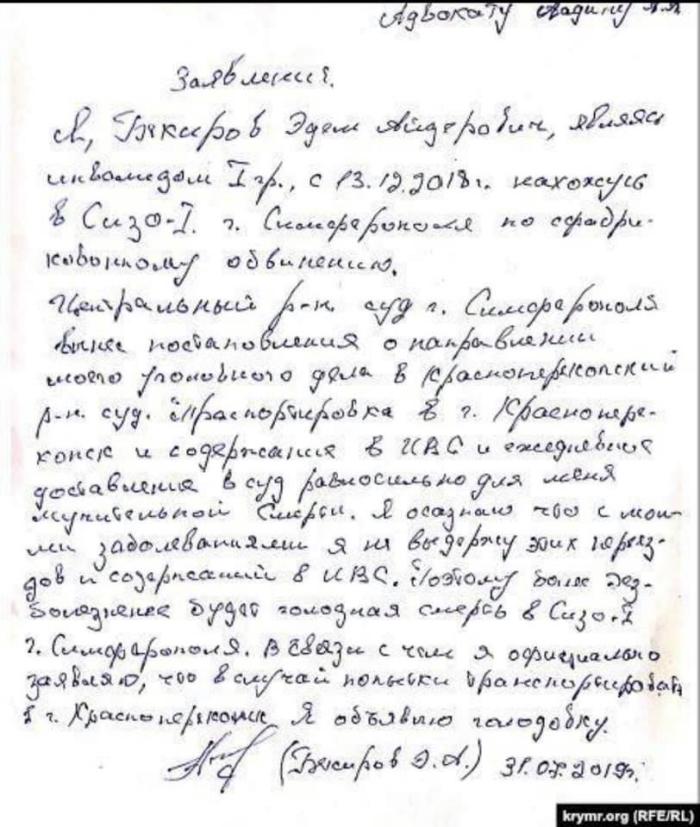 Адвокату Ладину А.А.
Заявления.
Я, Бекиров Эдем Айдерович, являясь
инвалидом I гр., с 13.12.2018г. нахожусь
в Сизо-I. г. Симферополя по сфабри-
кованному обвинению.
Центральный р-н. суд г. Симферополя
вынес постановления о направлении
моего уголовного дела в Красноперекопский
р-н. суд. Транспортировка в г. Краснопере-
копск и содержания в ИВС и ежедневные
доставления в суд равносильно для меня
мучительной смерти. Я осознаю что с мои-
ми заболеваниями я не выдержу этих переез-
дов и созержаний в ИВС. Поэтому более без-
болезненее будет голодная смерть в Сизо-I
г. Симферополя. В связи с чем я официально
заявляю, что в случай попытки транспортировать
в г. Красноперекопск Я объявлю голодовку.
(Бекиров Э.А.) 31.07.2019г.
krymr.org (RFE/RL)